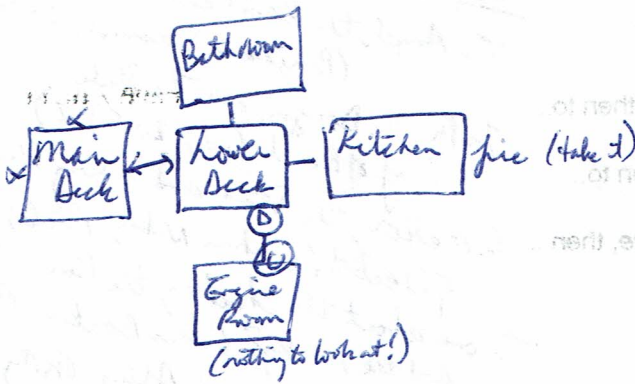 Bathroom
Main
Deck
Lower
Deck
Kitchen
(take it)
D
U
Engine
Room
(nothing to look at!)